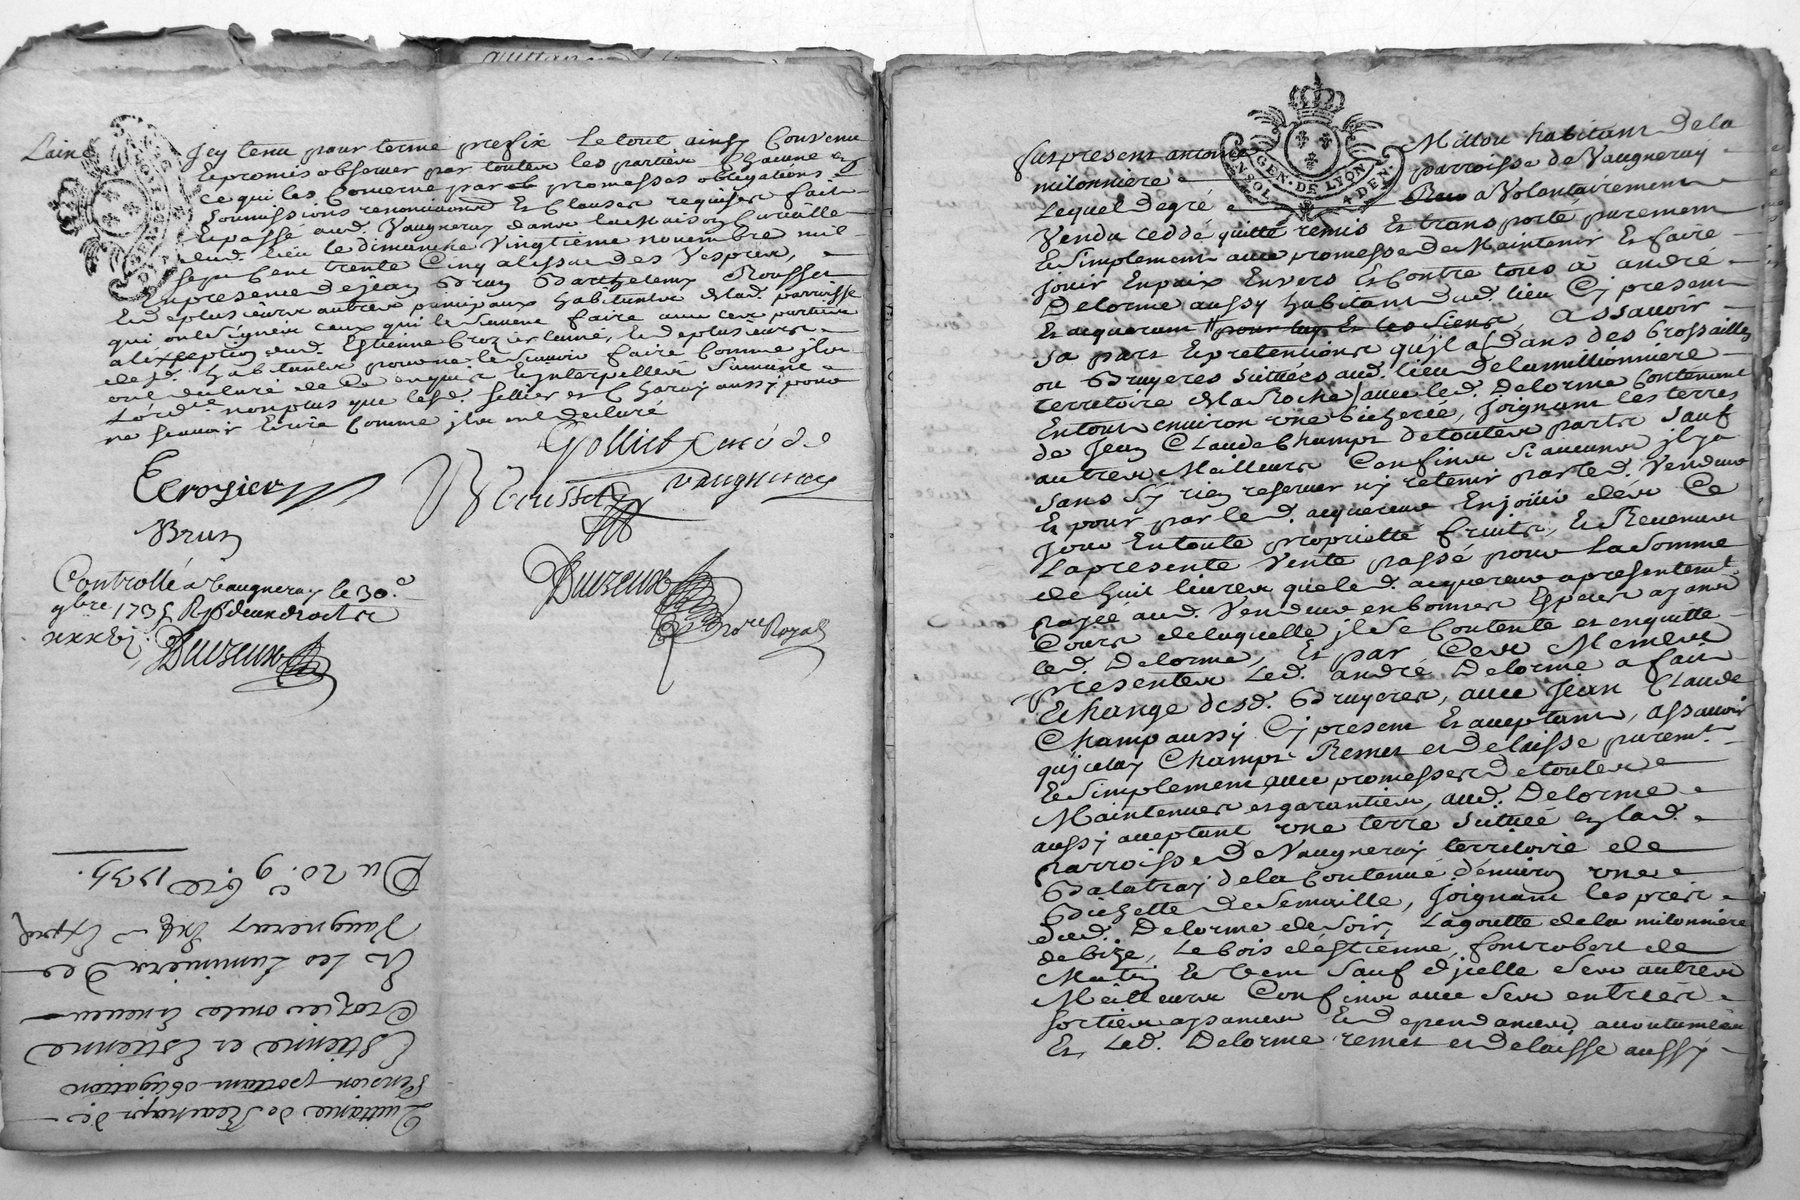 quittance
Laine
Jcy tenu pour terme prefix Le tout ainsy Convenu
Et promis observer par toutes les parties Chacune en
ce qui les Concerne par promesses obligations
Soumissions renonciations Et Clauses requises fait
Et passé aud. Vaugneray dans la Maison Curialle
dud. lieu le dimanche Vingtieme novembre mil
Sept Cent trente Cinq a lissue des Vespres,
En presence de Jean Brun Barthelemy Rousset
Et de plusieurs autres principaux habitants de lad. parroisse
qui ont Signé ceux qui le Scavent faire avec ces parties
a lexception dud. Estienne Crozier laine, Et de plusieurs
desd. habitants pour ne le Scavoir faire Comme jls
ont declaré de ce enquis Et Interpellés Suivant
Lord.ce non plus que lesd. Sellier et Charay aussy pour
ne Scavoir Ecrire Comme jls ont declaré
Golliet curé de
vaugneray
E Crozier
Rousset
Brun
Controllé a Vaugneray le 30.e
9bre 1735 R
Duvzeux
Duvzeux
No.re Royal
Du 20.e 9bre 1735.
Vaugneray
Et Les Luminiers De
Crozier oncle Envers
Estienne et Estienne
Pension portant obligation
Quittance de Rachapt de
GEN. DE LYON
Fut present antoine Millon habitant De la
milonniere parroisse de Vaugneray
Lequel De gré a Volontairement
Vendu ceddé quitté remis Et transporté purement
Et Simplement avec promesse de Maintenir Et faire
Jouir En paix Envers Et Contre tous à andré
Delorme aussy habitant dud. lieu Cy present
Et acquerant pour luy Et les Siens, assavoir
Sa part Et pretentions qu'jl a dans des brossailles
ou Bruyeres Scituées aud. lieu de la millionniere
territoire de la Roche avec led. Delorme Contenant
En tout environ une bicherée, Joignant les terres
de Jean Claude Champt de toutes parts Sauf
autres Meilleurs Confins Si aucuns jl y a
Sans Sy rien reserver ny retenir par led. Vendeur
Et pour par led. acquereur En joüir dès Ce
Jour En toute proprietté fruits, Et Revenus
La presente Vente passé pour La Somme
de huit livres que led. acquereur a presentem.t
payée aud. Vendeur en bonnes Especes ayant
Cours de laquelle jl Se Contente et en quitte
led. Delorme, Et par Ces Memes
presentes Led. andré Delorme a fait
Echange desd. Bruyeres, avec Jean Claude
Champ aussy Cy present Et acceptant, assavoir
qu'jceluy Champt Remet et De laisse purem.t
Et Simplement avec promesses De toutes
Maintenues et garanties, aud. Delorme
aussy acceptant une terre Scituée en lad.
parroisse De Vaugneray territoire de
Balatray de la Contenue d'environ une
Bichette de Semaille, Joignant les prés
dud. Delorme de Soir, La goutte de la milonniere
de bize, Le bois d'Estienne fontrobert de
Matin Et Vent Sauf d'jcelle Ses autres
Meilleurs Confins avec Ses entrées
Sorties apances Et Dependances, accoutumées
Et, Led. Delorme remet et Delaisse aussy